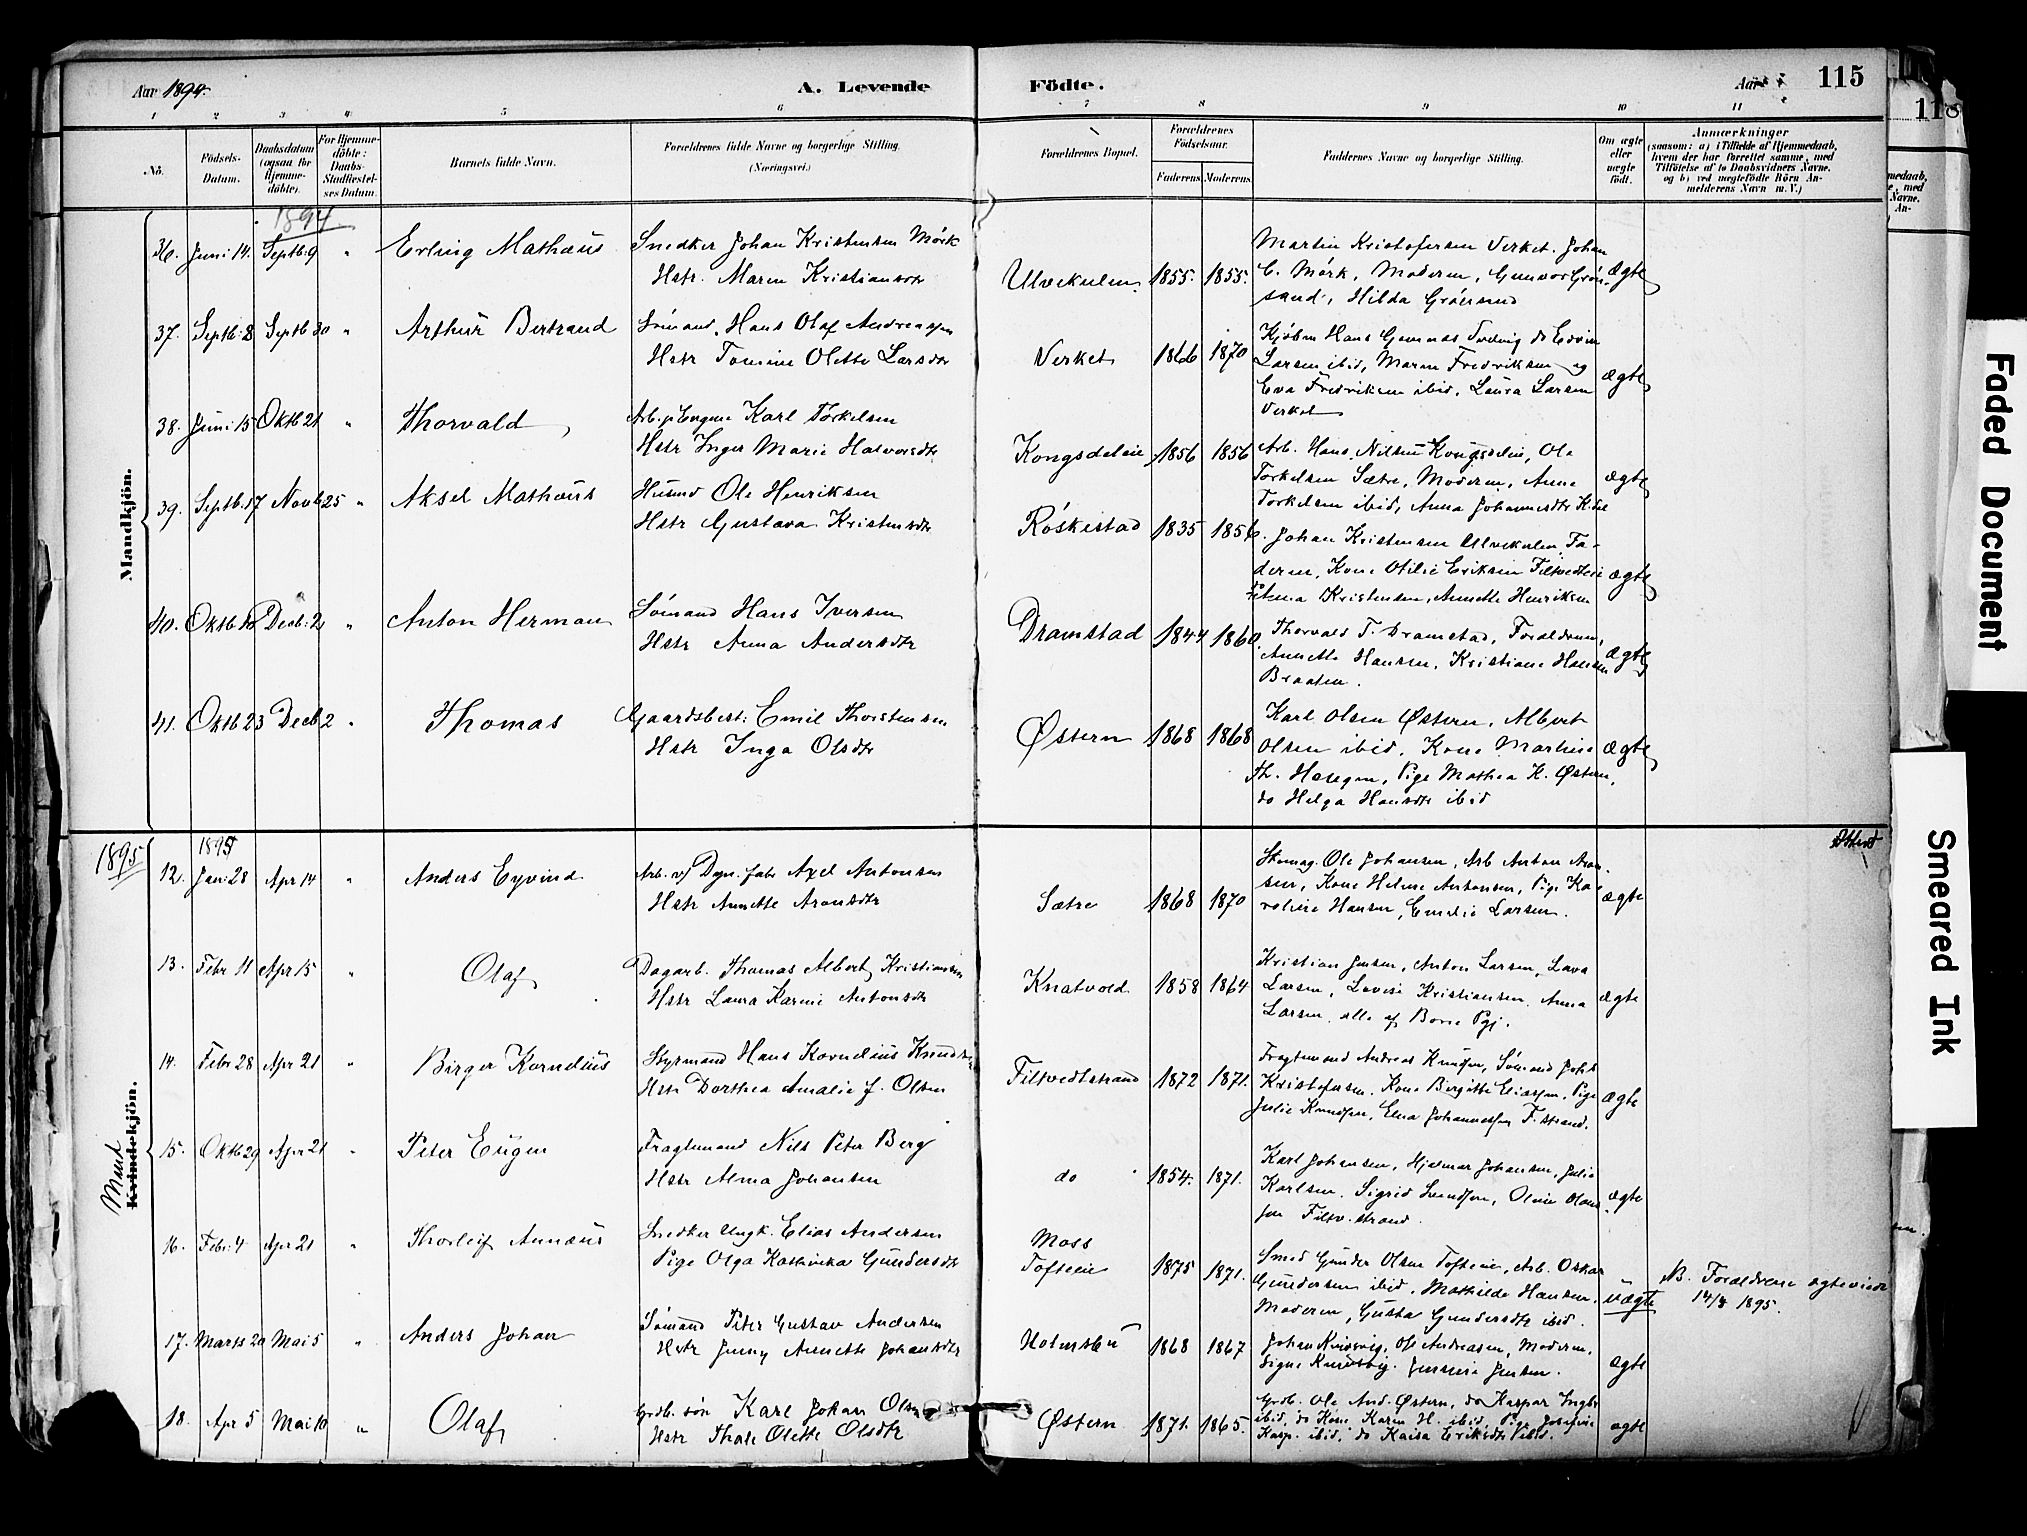 Aar 1894. A. Levende Födte. Aar 115
118
1 2 3 4 5 6 7 8 9 10 11
No. Födsels-Datum. Daabsdatum (ogsaa for Hjemme-döbte). For Hjemme-döbte: Daabs-Stadfæstel-ses Datum. Barnets fulde Navn. Forældrenes fulde Navne og borgerlige Stilling. (Næringsvei.) Forældrenes Bopæl. Forældrenes Födselsaar. Faderens Moderens Faddernes Navne og borgerlige Stilling. Om ægte eller uægte födt. Anmærkninger (saasom: a) i Tilfælde af Hjemmedaab, hvem der har forrettet samme, med Tilföielse af to Daabsvidners Navne, og b) ved uægtefödte Börn An-melderens Navn m. V.)
Mandkjön.
1894
36. Juni 14. Septb. 9 " Erling Mathæus Snedker Johan Kristensen Mörk
Hstr. Maren Kristiansdtr Ulvekulen 1855. 1855.
Martin Kristofersen Verket. Johan
C. Mörk, Moderen, Gunvor Grön-
sand, Hilda Grönsand ægte
37. Septb. 8 Septb 30 " Arthur Bertrand Sömand, Hans Olaf Andreassen
Hstr Tomine Olette Larsdtr Verket 1866 1870
Larsen ibid, Maren Fredriksen og
Eva Fredriksen ibid. Laura Larsen
Verket ægte
38. Juni 15 Oktb 21 " Thorvald Karl Torkelsen
Hstr Inger Marie Halvorsdtr Kongsdeleie 1856 1856
Arb. Hans Nilsen Kongsdelie, Ole
Torkelsen Sætre, Moderen, Anne
Torkelsen ibid, Anna Johannesdtr K.del ægte
39. Septb. 17 Novb 25 " Aksel Mathæus Husmd Ole Henriksen
Hstr Gustava Kristensdtr Röskestad 1835 1856
Johan Kristensen Ulvekulen, Fa-
deren, Kone Otilie Eriksen Filtvedteie
Kristensen, Annette Henriksen ægte
40. Oktb 10 Decb: 2 " Anton Herman Sömand Hans Iversen
Hstr Anna Andersdtr Dramstad 1844 1860
Thorvald T. Dramstad, Forældrene,
Annette Hansen, Kristiane Hansen
Braaten. ægte
41. Oktb 23 Decb 2 " Thomas Gaardsbest: Emil Thorstensen
Hstr Inga Olsdtr Östern 1868 1868
Karl Olsen Östern, Albert
Olsen ibid, Kone Martine
Th. Haregen, Pige Mathea K. Östern,
do Helga Hansdtr ibid ægte
1895
Mand
Kvindekjön.
1895
12. Jan: 28 Apr 14 " Anders Eyvind Arb. v/ Dyn. fabr Axel Antonsen
Hstr Annette Aronsdtr Sætre 1868 1870
Skomag. Ole Johansen, Arb Anton Aron-
sen, Kone Helene Antonsen, Pige Ka-
roline Hansen, Emelie Larsen. ægte
Attest
13. Febr 11 Apr 15 " Olaf Dagarb. Thomas Albert Kristiansen
Hstr Laura Karine Antonsdtr Knatvold 1858 1864
Kristian Jensen, Anton Larsen, Lava
Larsen, Lovise Kristiansen, Anna
Larsen, alle af Borre Pgj. ægte
14. Febr 28 Apr 21 " Birger Kornelius Styrmand Hans Kornelius Knudsen
Hstr Dorthea Amalie f. Olsen Filtvedtstrand 1872 1871.
Fragtemand Andreas Knudsen, Sömand Joh.
Kristofersen, Kone Birgitte Eliassen, Pige
Julie Knudsen, Elna Johannessen F.strand. ægte
15. Oktb 29 Apr 21 " Peter Eugen Fragtemand Nils Peter Berg
Hstr Alma Johansen do 1854. 1871.
Karl Johansen, Hjalmar Johansen, Julie
Karlsen, Sigrid Svendsen, Oline Olaus-
sen Filtv.strand. ægte
16. Febr: 4 Apr 21 " Thorleif Annæus Snedker Ungk. Elias Andersen
Pige Olga Kathinka Gundersdtr Moss
Tofteeie 1875 1871.
Smed Gunder Olsen Tofteeie, Arb. Oskar
Gundersen ibid. Mathilde Hansen,
Moderen, Gusta Gundersdtr ibid. uægte
N. Forældrene ægteviede
14/8 1895.
17. Marts 20 Mai 5 " Anders Johan Sömand Peter Gustav Andersen
Hstr Jenny Annette Johansdtr Holmsbu 1868 1867
Johan Knivsvig, Ole Andreasen, Moderen,
Signe Knivsvig. Jensine Jensen. ægte
18. Apr 5 Mai 10 " Olaf Grdb. sön Karl Johan Olsen
Hstr Thale Olette Olsdtr Östern 1871. 1865.
Grdb. Ole And. Östern, do Kaspar Ingbr
ibid, do Kone Karen H. ibid, Pige Josefine
Kasp. ibid, do Kaisa Eriksdtr ibid. ægte
Faded Document
Smeared Ink